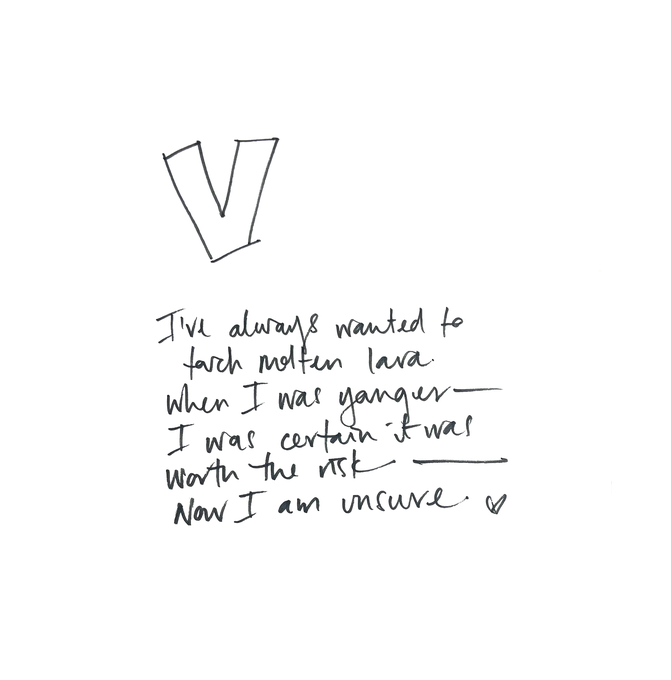 V
I've always wanted to
touch molten lava.
when I was younger —
I was certain it was
worth the risk —
Now I am unsure. ♡